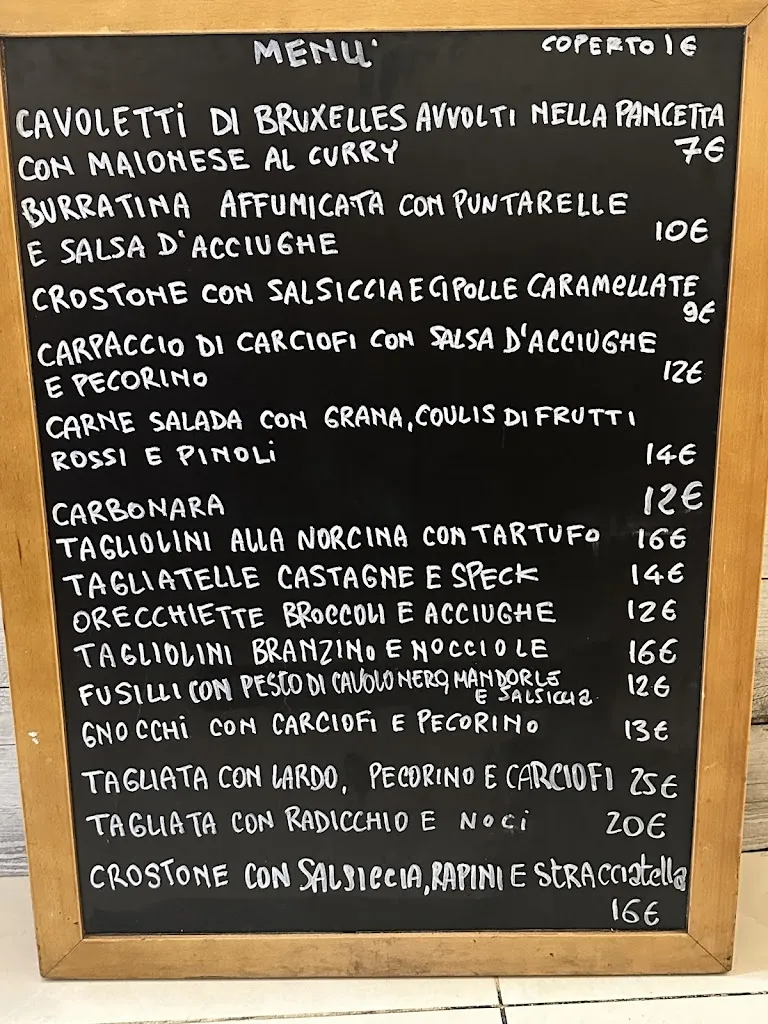 MENU' COPERTO 1€
CAVOLETTI DI BRUXELLES AVVOLTI NELLA PANCETTA
CON MAIONESE AL CURRY 7€
BURRATINA AFFUMICATA CON PUNTARELLE
E SALSA D'ACCIUGHE 10€
CROSTONE CON SALSICCIA E CIPOLLE CARAMELLATE
9€
CARPACCIO DI CARCIOFI CON SALSA D'ACCIUGHE
E PECORINO 12€
CARNE SALADA CON GRANA, COULIS DI FRUTTI
ROSSI E PINOLI 14€
CARBONARA 12€
TAGLIOLINI ALLA NORCINA CON TARTUFO 16€
TAGLIATELLE CASTAGNE E SPECK 14€
ORECCHIETTE BROCCOLI E ACCIUGHE 12€
TAGLIOLINI BRANZINO E NOCCIOLE 16€
FUSILLI CON PESTO DI CAVOLO NERO, MANDORLE 12€
E SALSICCIA
GNOCCHI CON CARCIOFI E PECORINO 13€
TAGLIATA CON LARDO, PECORINO E CARCIOFI 25€
TAGLIATA CON RADICCHIO E NOCI 20€
CROSTONE CON SALSICCIA, RAPINI E STRACCIATELLA
16€